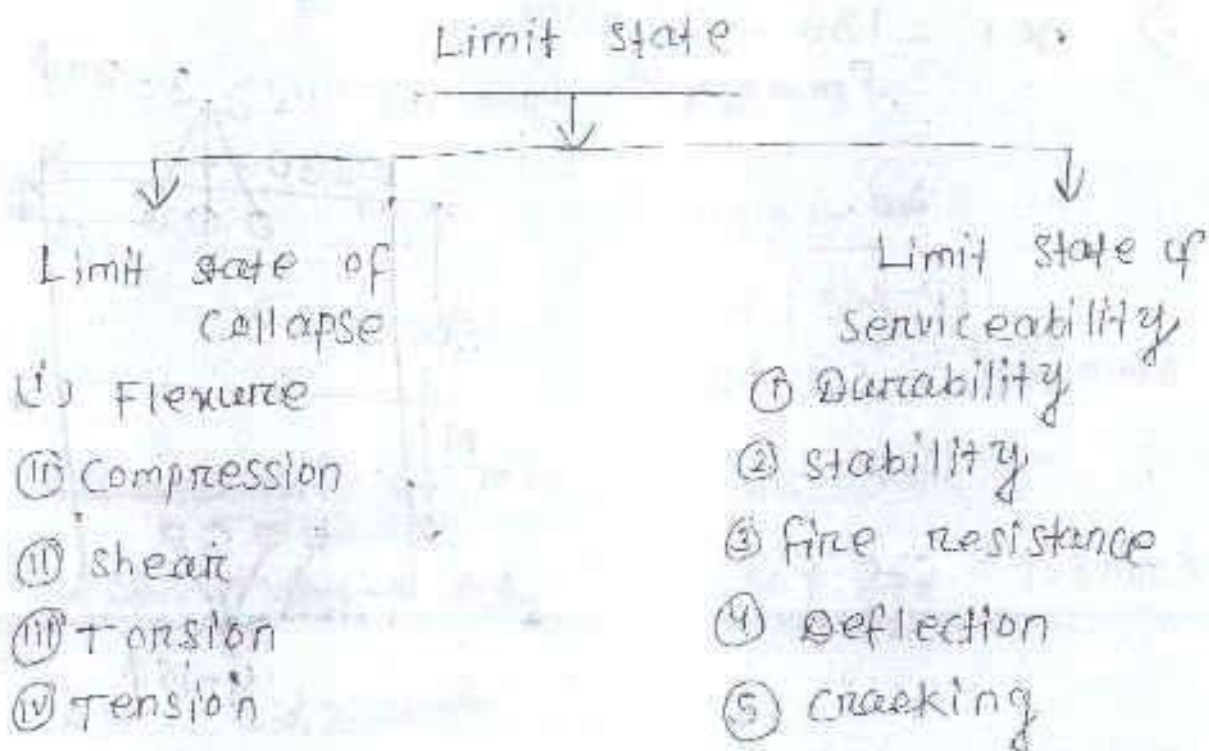 Limit state
Limit state of
collapse
(i) Flexure
(ii) Compression
(ii) shear
(iii) Torsion
(iv) Tension
Limit state of
serviceability
① Durability
② stability
③ fire resistance
④ Deflection
⑤ cracking